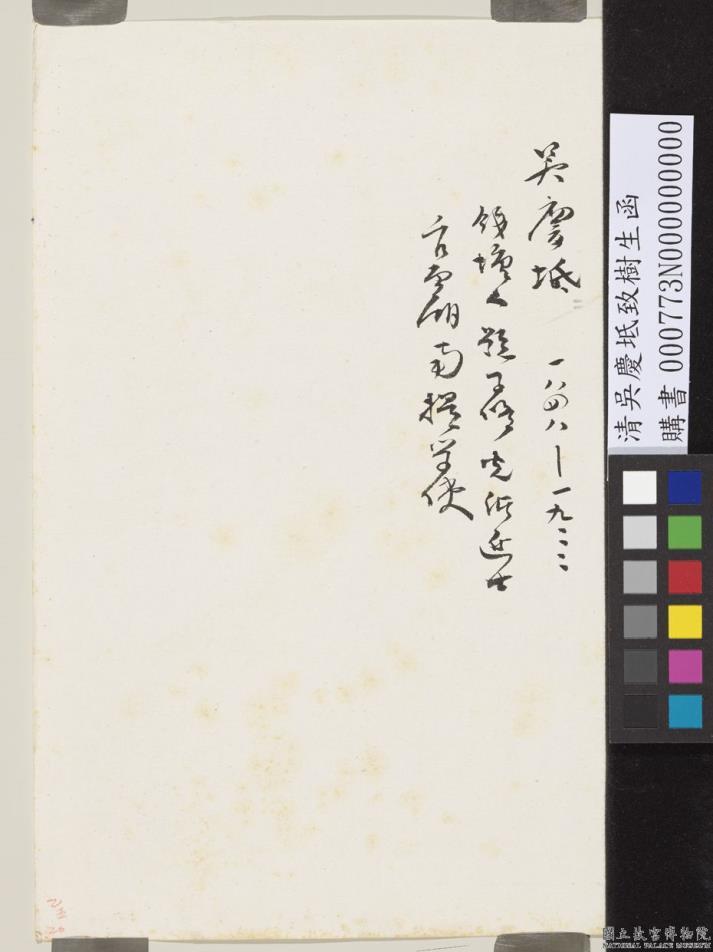 吳慶坻 一八四八—一九二二
錢塘人 號子修 光緒進士
官至湖南提學使
清吳慶坻致樹生函
購書 000773N000000000
國立故宮博物院
NATIONAL PALACE MUSEUM